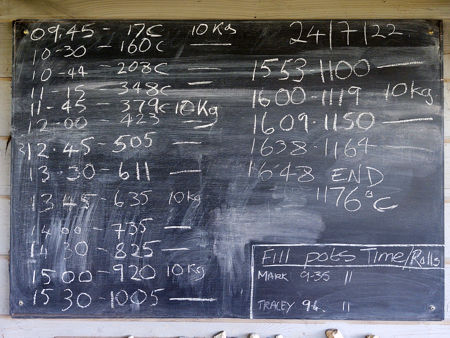 09.45 - 17c 10Kg
10-30 - 160c —
10-44 - 208c —
11-15 - 348c —
11-45 - 379c 10Kg
12-00 - 423 —
12.45 - 505 —
13.30 - 611 —
13 45 - 635 10kg
14 00 - 735 —
14 30 - 825 —
15 00 - 920 10kg
15 30 - 1005 —
24/7/22
1553 - 1100 —
1600 - 1119 10kg
1609 - 1150 —
1638 - 1164
1648 END
1176°C
Fill pots Time/Rolls
MARK 9-35 11
TRACEY 11